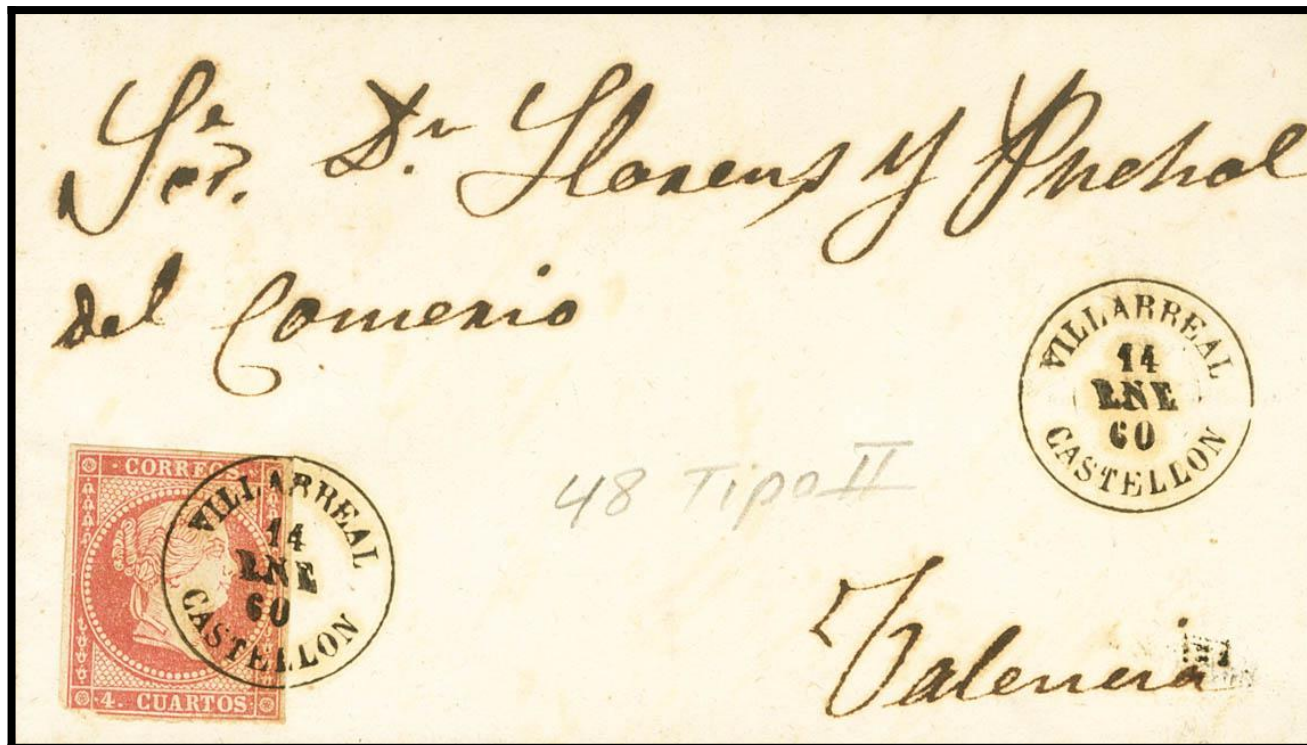 Sr. Dn. Llorens y Puchol
del Comercio
VILLARREAL
14
ENE
60
CASTELLON
48 Tipo II
CORREOS
VILLARREAL
14
ENE
60
CASTELLON
4. CUARTOS
Valencia